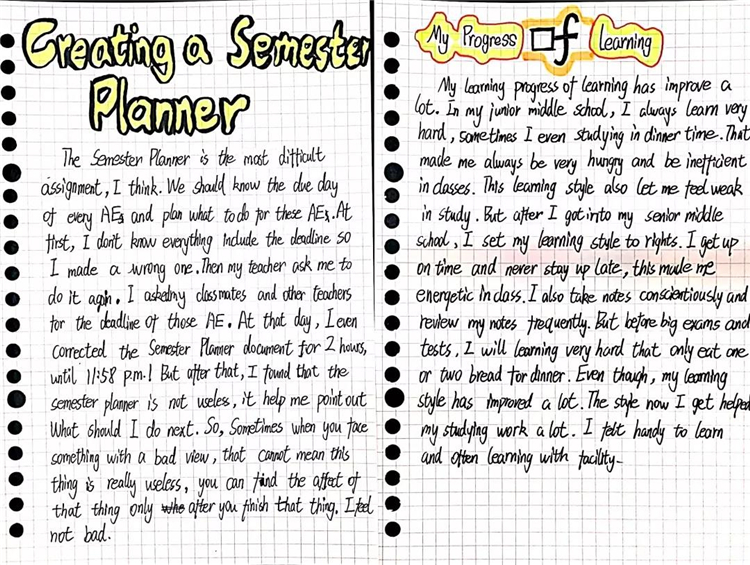 Creating a Semester
Planner
The Semester Planner is the most difficult
assignment, I think. We should know the due day
of every AEs and plan what to do for these AEs. At
first, I don't know everything include the deadline so
I made a wrong one. Then my teacher ask me to
do it again. I asked my classmates and other teachers
for the deadline of those AE. At that day, I even
corrected the Semester Planner document for 2 hours,
until 11:58 p.m.! But after that, I found that the
semester planner is not useless, it help me point out
What should I do next. So, Sometimes when you face
something with a bad view, that cannot mean this
thing is really useless, you can find the affect of
that thing only after you finish that thing. I feel
not bad.
My Progress of Learning
My learning progress of learning has improve a
lot. In my junior middle school, I always learn very
hard, sometimes I even studying in dinner time. That
made me always be very hungry and be inefficient
in classes. This learning style also let me feel weak
in study. But after I got into my senior middle
school, I set my learning style to rights. I get up
on time and never stay up late, this made me
energetic in class. I also take notes conscientiously and
review my notes frequently. But before big exams and
tests, I will learning very hard that only eat one
or two bread for dinner. Even though, my learning
style has improved a lot. The style now I get helped
my studying work a lot. I felt handy to learn
and often learning with facility.